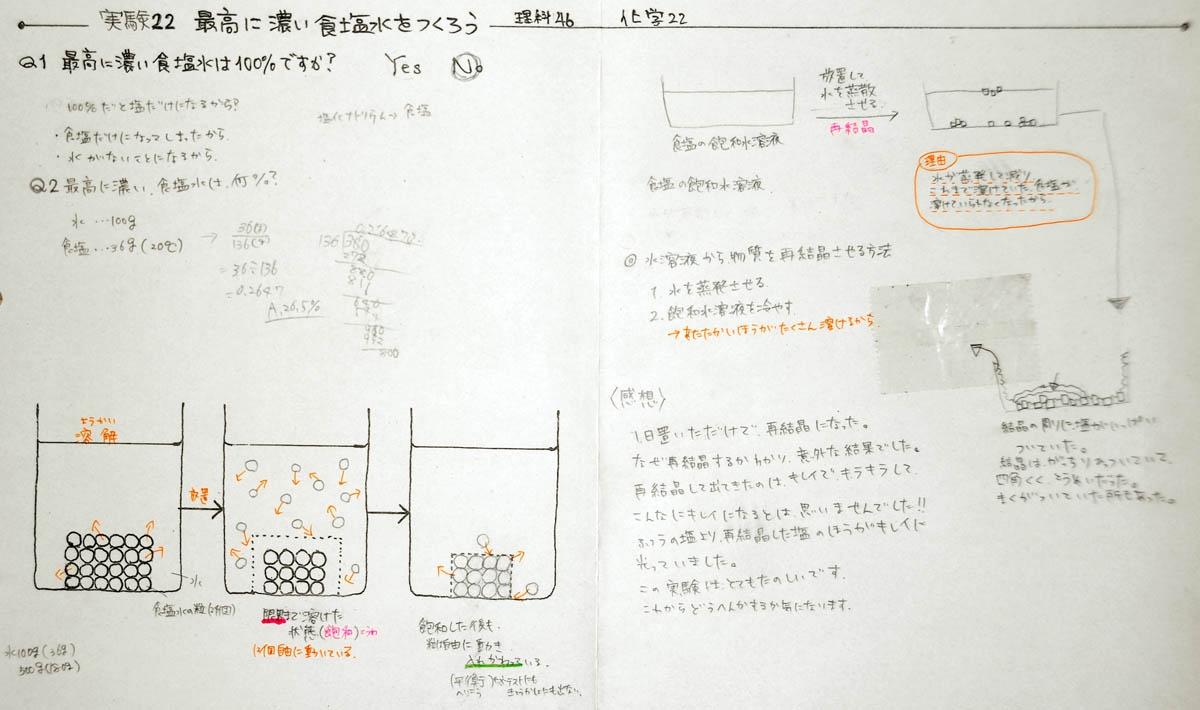 実験22 最高に濃い食塩水をつくろう 理科46 化学22
Q1 最高に濃い食塩水は100%ですか? Yes No
100%だと塩だけになるから?
塩化ナトリウム→食塩
・食塩だけになってしまったから.
・水がないことになるから.
Q2 最高に濃い、食塩水は、何%?
水 …100g
食塩…36g(20℃)
→ 36(g)
136(g)
=36÷136
=0.2647
A,26,5%
136
ようかい
溶解
放置
水
食塩水の粒(24個)
水100g(36g)
限界まで溶けた
状態(飽和)
12個自由に動いている.
飽和した後も.
自由に動き
入れかわっている.
(平衡)
へいこう
食塩の飽和水溶液
放置して
水を蒸散
させる.
再結晶
食塩の飽和水溶液.
理由
水が蒸発して減り
これまで溶けていた食塩が
溶けていられなくなったから.
◎ 水溶液から物質を再結晶させる方法
1. 水を蒸発させる.
2. 飽和水溶液を冷やす.
→あたたかいほうがたくさん溶けるから.
〈感想〉
1日置いただけで、再結晶になった。
なぜ再結晶するかわかり、意外な結果でした。
再結晶して出てきたのは、キレイで、キラキラして、
こんなにキレイになるとは、思いませんでした!!
ふつうの塩より、再結晶した塩のほうがキレイに
光っていました。
この実験は、とてもたのしいです.
これからどうへんかするか気になります.
結晶の周りに塩がいっぱい
ついていた。
結晶は、がっちりあっていて、
四角く
まくがついていた所もあった。